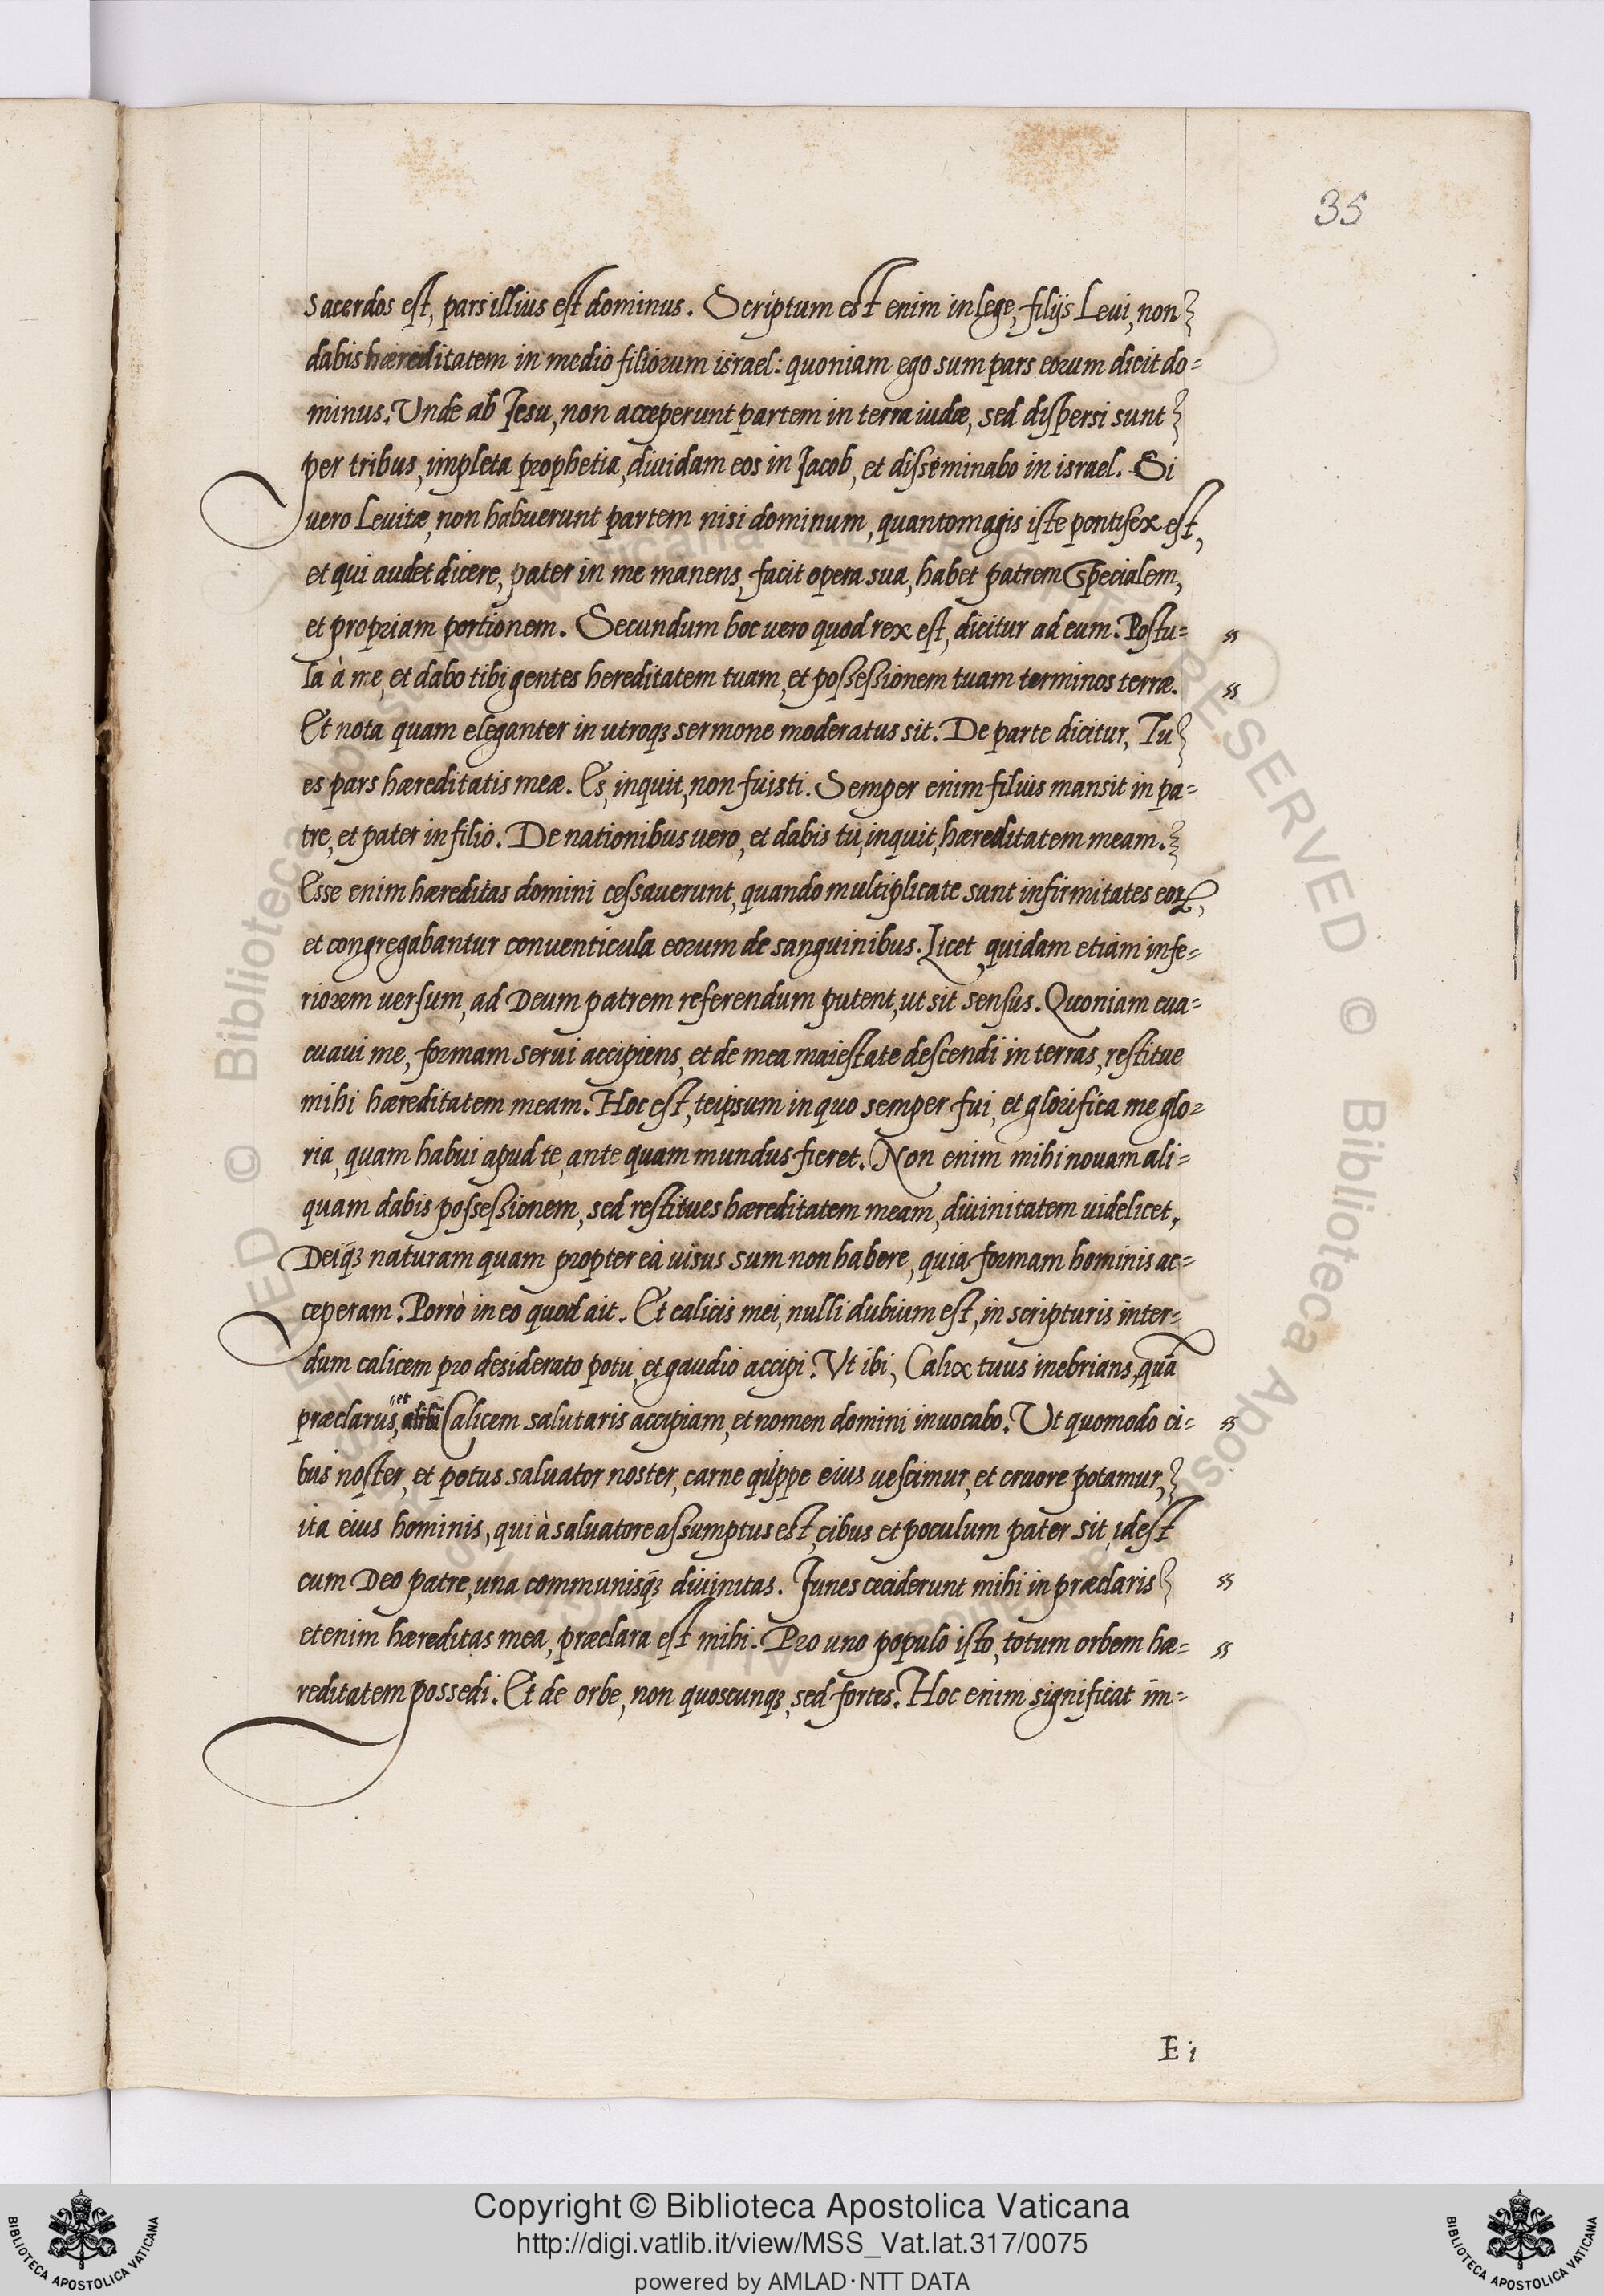 35
Sacerdos est, pars illius est dominus. Scriptum est enim in lege, filijs Leui, non
dabis hæreditatem in medio filiorum israel: quoniam ego sum pars eorum dicit do=
minus. Unde ab Jesu, non acceperunt partem in terra iudæ, sed dispersi sunt
per tribus, impleta prophetia, diuidam eos in Jacob, et disseminabo in israel. Si
uero Leuitæ, non habuerunt partem nisi dominum, quantomagis iste pontifex est,
et qui audet dicere, pater in me manens, facit opera sua, habet patrem specialem,
et propriam portionem. Secundum hoc uero quod rex est, dicitur ad eum. Postu=
la à me, et dabo tibi gentes hereditatem tuam, et possessionem tuam terminos terræ.
Et nota quam eleganter in utroqꝫ sermone moderatus sit. De parte dicitur, Tu
es pars hæreditatis meæ. Es, inquit, non fuisti. Semper enim filius mansit in pa=
tre, et pater in filio. De nationibus uero, et dabis tu, inquit, hæreditatem meam.
Esse enim hæreditas domini cessauerunt, quando multiplicate sunt infirmitates eoꝝ,
et congregabantur conuenticula eorum de sanguinibus. Licet quidam etiam infe=
riorem uersum, ad Deum patrem referendum putent, ut sit sensus. Quoniam eua=
cuaui me, formam serui accipiens, et de mea maiestate descendi in terras, restitue
mihi hæreditatem meam. Hoc est, teipsum in quo semper fui, et glorifica me glo=
ria, quam habui apud te, ante quam mundus fieret. Non enim mihi nouam ali=
quam dabis possessionem, sed restitues hæreditatem meam, diuinitatem uidelicet,
Deiqꝫ naturam quam propter eà uisus sum non habere, quia formam hominis ac=
ceperam. Porrò in eo quod ait. Et calicis mei, nulli dubium est, in scripturis inter=
dum calicem pro desiderato potu, et gaudio accipi. Vt ibi, Calix tuus inebrians, quā
præclarus, et alibi Calicem salutaris accipiam, et nomen domini inuocabo. Ut quomodo ci=
bus noster, et potus saluator noster, carne quippe eius uescimur, et cruore potamur,
ita eius hominis, qui à saluatore assumptus est, cibus et poculum pater sit, idest
cum Deo patre, una communisqꝫ diuinitas. Funes ceciderunt mihi in præclaris
etenim hæreditas mea, præclara est mihi. Pro uno populo isto, totum orbem hæ=
reditatem possedi. Et de orbe, non quoscunqꝫ, sed fortes. Hoc enim significat im=
E i
Copyright © Biblioteca Apostolica Vaticana
http://digi.vatlib.it/view/MSS_Vat.lat.317/0075
powered by AMLAD·NTT DATA
BIBLIOTECA APOSTOLICA VATICANA
BIBLIOTECA APOSTOLICA VATICANA